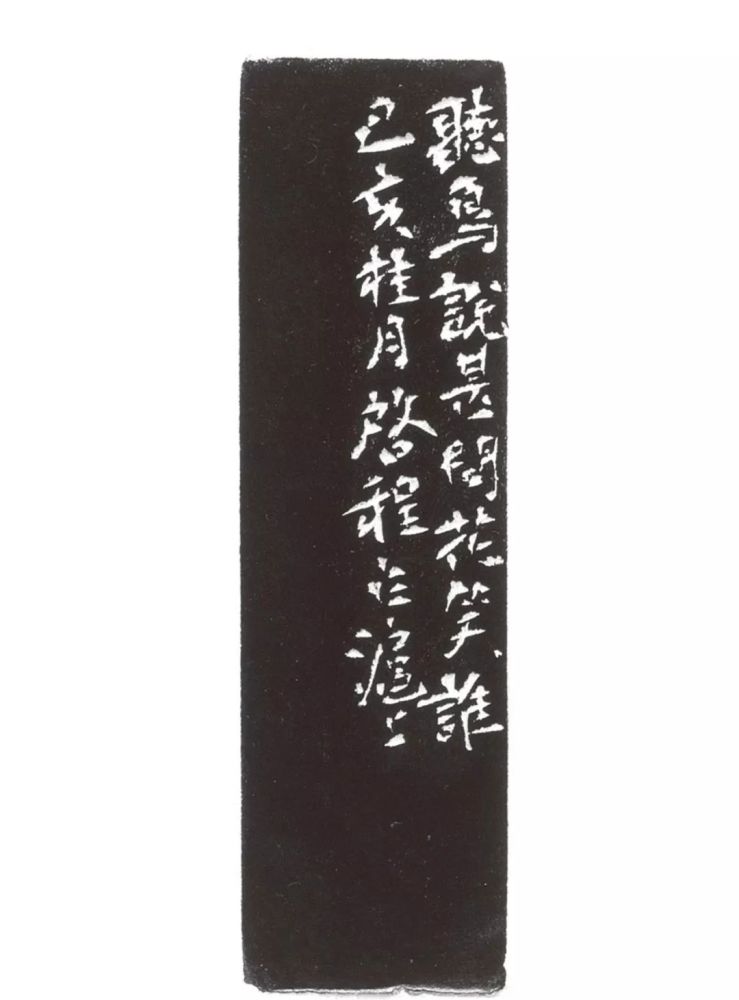 聽鳥說甚問花笑誰
己亥桂月啓程於滬上